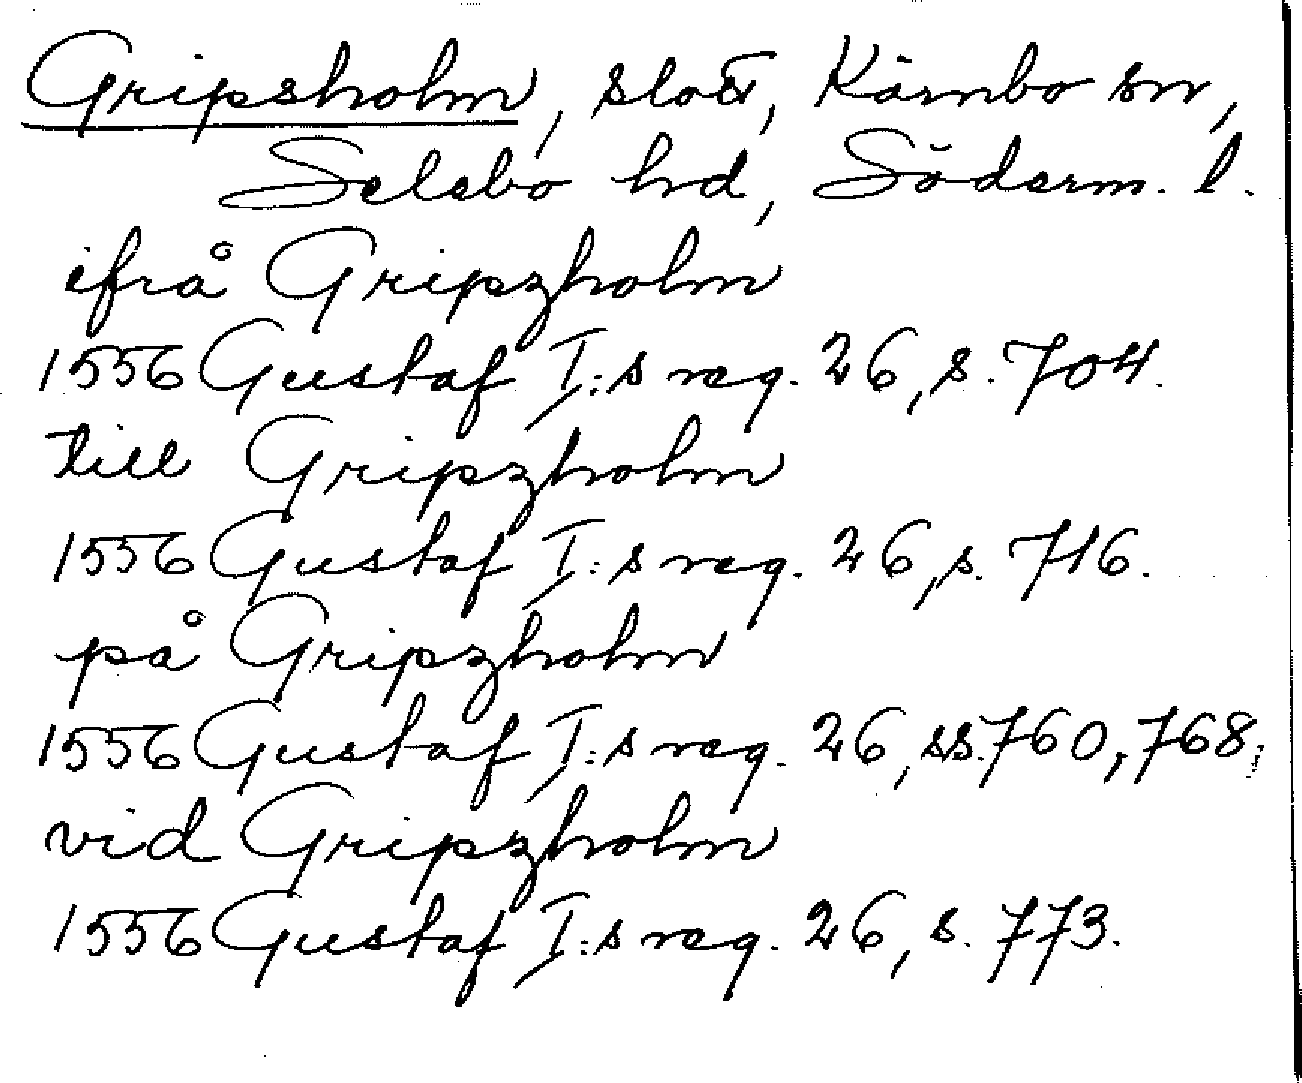 Gripsholm, slott, Kärnbo sn,
Selebo hd, Söderm. l.
ifrå Gripzholm
1556 Gustaf I:s reg. 26, s. 704.
till Gripzholm
1556 Gustaf I:s reg. 26, s. 716.
på Gripzholm
1556 Gustaf I:s reg. 26, ss. 760, 768;
vid Gripzholm
1556 Gustaf I:s reg. 26, s. 773.